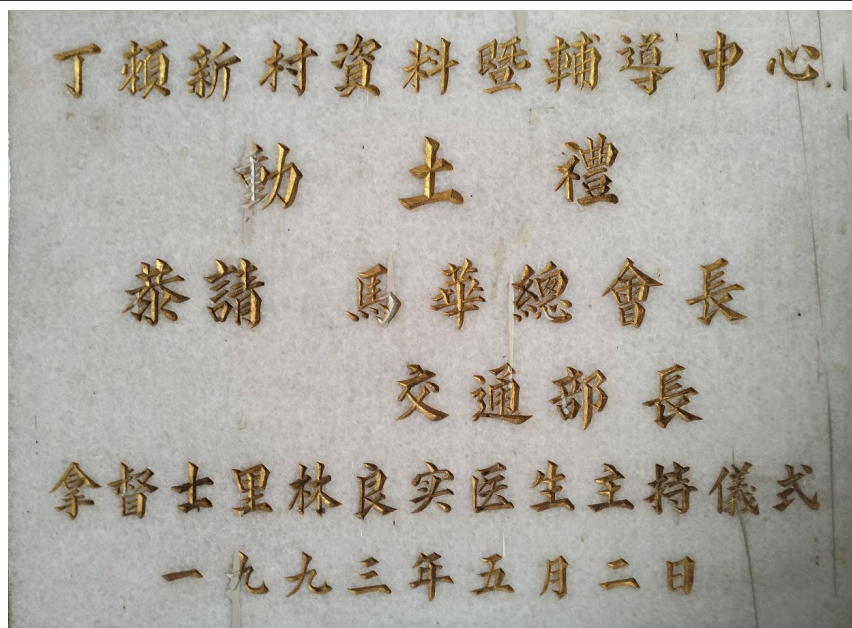 丁賴新村資料暨輔導中心
動土禮
恭請 馬華總會長
交通部長
拿督士里林良实医生主持儀式
一九九三年五月二日